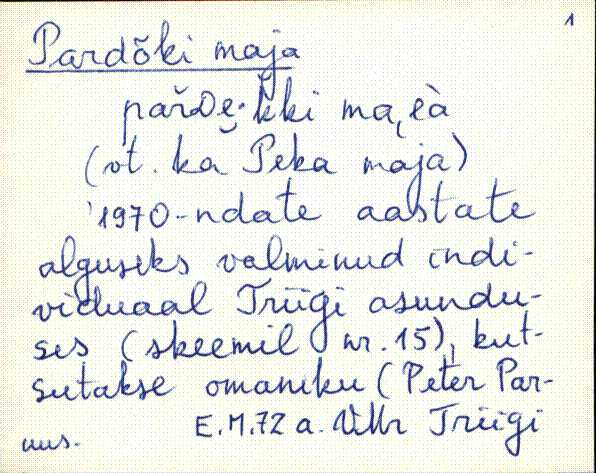 1
Pardõki maja
(vt. ka Peka maja)
1970-ndate aastate
alguseks valminud indi-
viduaal Triigi asundu-
ses (skeemil nr. 15), kut-
sutakse omaniku (Peter Par-
E.M. 72 a. VMr Triigi